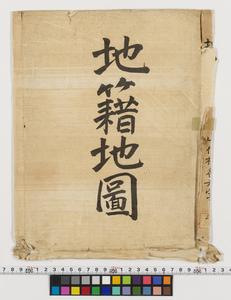 地籍地圖